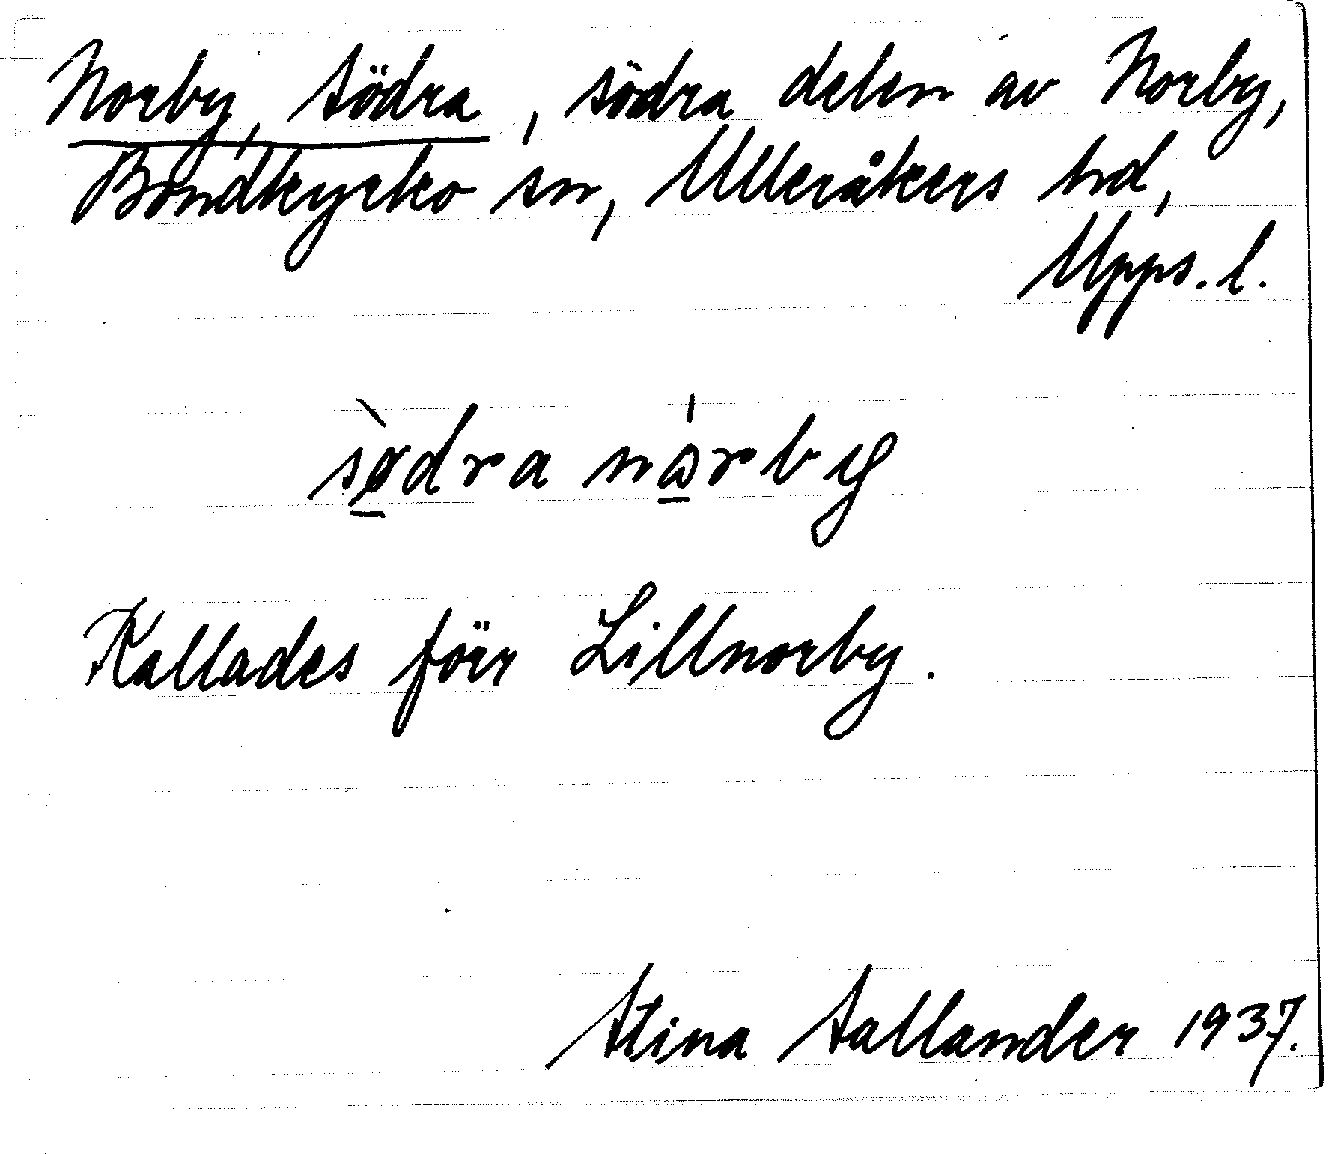 Norby, Södra, södra delen av Norby,
Bondkyrko sn, Ulleråkers hd,
Upps. l.
sø̀dra nórby
Kallades förr Lillnorby.
Stina Sallander 1937.